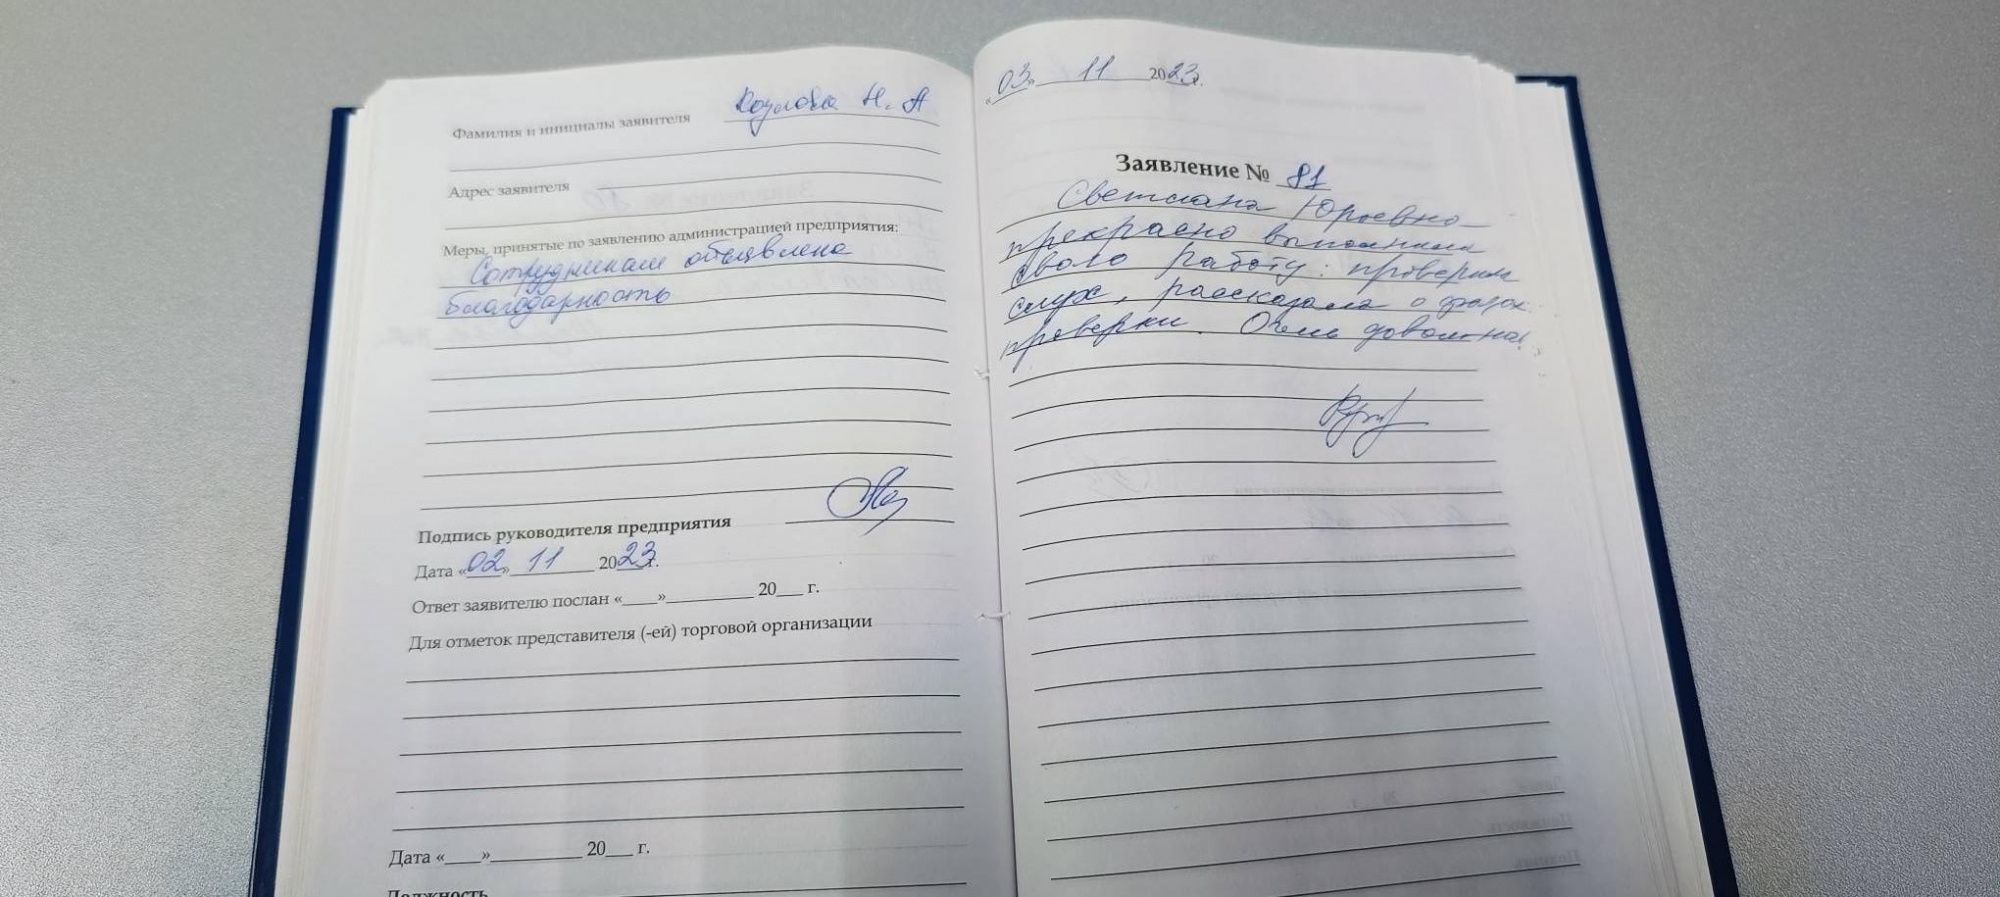 Фамилия и инициалы заявителя Козлова Н. А
Адрес заявителя
Меры, принятые по заявлению администрацией предприятия:
Сотрудникам объявлена
благодарность
Подпись руководителя предприятия
Дата «02» 11 2023г.
Ответ заявителю послан «____»__________ 20___ г.
Для отметок представителя (-ей) торговой организации
Дата «____»__________ 20___ г.
Должность
«03» 11 2023г.
Заявление № 81
Светлана Юрьевна
прекрасно выполнила
свою работу: проверила
слух, рассказала о фазах
проверки. Очень довольна!